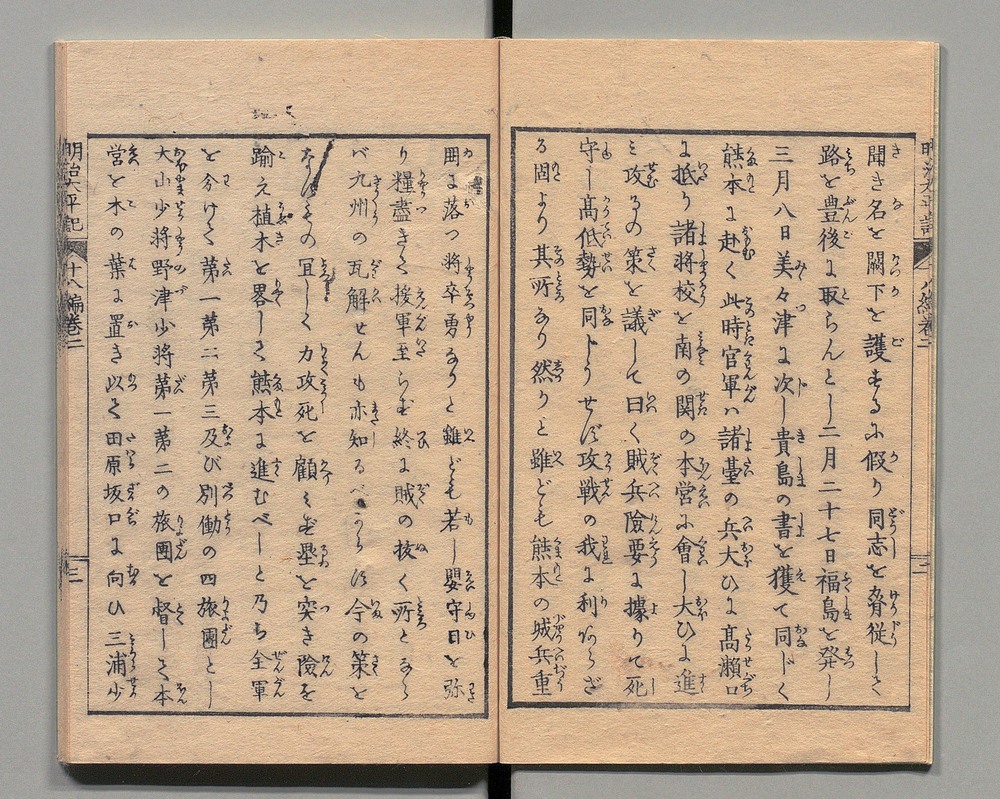 聞き名を闕下を護するに假り同志を脅従して
路を豊後に取らんとし二月二十七日福島を発し
三月八日美々津に次し貴島の書を獲て同じく
熊本に赴く此時官軍ハ諸䑓の兵大ひに髙瀬口
に抵り諸将校を南の関の本営に會し大ひに進
ミ攻るの策を議して曰く賊兵險要に據りて死
守し髙低勢を同ふせず攻戦の我に利あらざ
る固より其所なり然りと雖ども熊本の城兵重
囲に落つ将卒勇なりと雖ども若し嬰守日を弥
り糧盡きて援軍至らず終に賊の抜く所となら
バ九州の瓦解せんも亦知るべからず今の策を
なすもの宜しく力攻死を顧ミず塁を突き險を
踰え植木を畧して熊本に進むべしと乃ち全軍
を分けて第一第二第三及び別働の四旅團とし
大山少将野津少将第一第二の旅團を督して本
営を木の葉に置き以て田原坂口に向ひ三浦少
明治太平記
十八編巻二
二